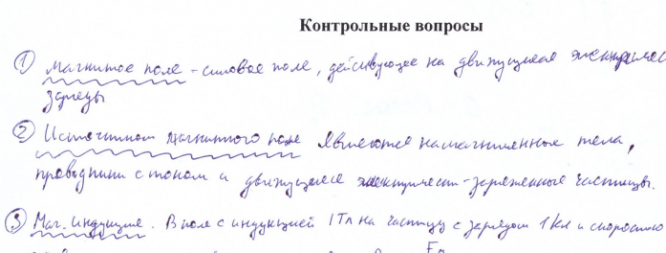 Контрольные вопросы
① Магнитное поле - силовое поле, действующее на движущиеся электрические
заряды
② Источником магнитного поля являются намагниченные тела,
проводники с током и движущиеся электрически-заряженные частицы.
③ Маг. индукция. В поле с индукцией 1Тл на частицу с зарядом 1Кл и скоростью